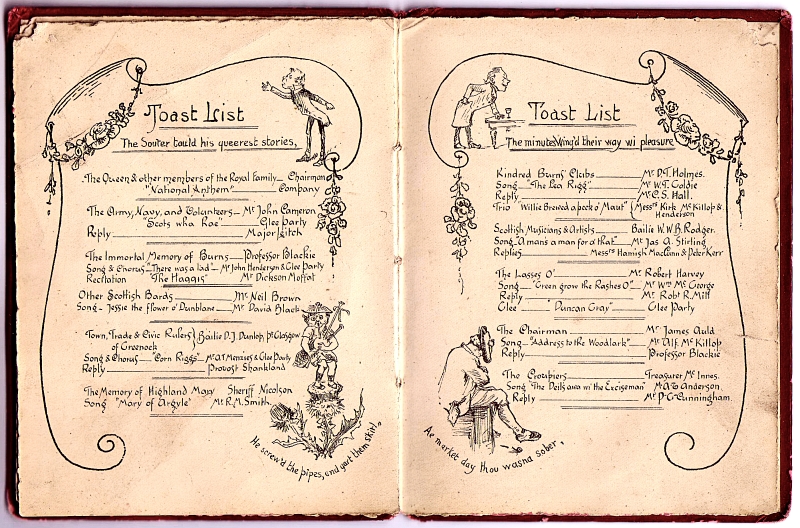 Toast List
The Souter tauld his queerest stories,
The Queen & other members of the Royal Family Chairman
"National Anthem" Company
The Army, Navy, and Volunteers Mr John Cameron
"Scots wha hae" Glee Party
Reply Major Leitch
The Immortal Memory of Burns Professor Blackie
Song & Chorus "There was a lad" Mr John Henderson & Glee Party
Recitation "The Haggis" Mr Dickson Moffat
Other Scottish Bards Mr Neil Brown
Song - Jessie the flower o' Dunblane Mr David Black
Town, Trade & Civic Rulers Bailie D. J. Dunlop, Pt Glasgow
of Greenock
Song & Chorus "Corn Riggs" Mr A.T. Menzies & Glee Party
Reply Provost Shankland
The Memory of Highland Mary Sheriff Nicolson
Song "Mary of Argyle" Mr R.M. Smith
He screw'd the pipes, and gart them skirl,
Toast List
The minutes wing'd their way wi pleasure
Kindred Burns' Clubs Mr D.T. Holmes.
Song "The Lea Rigg" Mr W.T. Goldie
Reply Mr C.S. Hall.
Trio "Willie Brewed a peck o' Maut" Messrs Kirk McKillop &
Henderson
Scottish Musicians & Artists Bailie W. W. B. Rodger.
Song "A mans a man for a' that" Mr Jas A. Stirling
Replies Messrs Hamish MacCunn & Peter Kerr
The Lasses O' Mr Robert Harvey
Song "Green grow the Rashes O" Mr Wm McGeorge
Reply Mr Robt R. Mitt
Glee "Duncan Gray" Glee Party
The Chairman Mr James Auld
Song "Address to the Woodlark" Mr Alf. McKillop
Reply Professor Blackie
The Croupiers Treasurer McInnes.
Song "The Deils awa wi' the Exciseman" Anderson.
Reply Mr D. C. Cunningham.
Ae market day thou wasna sober,